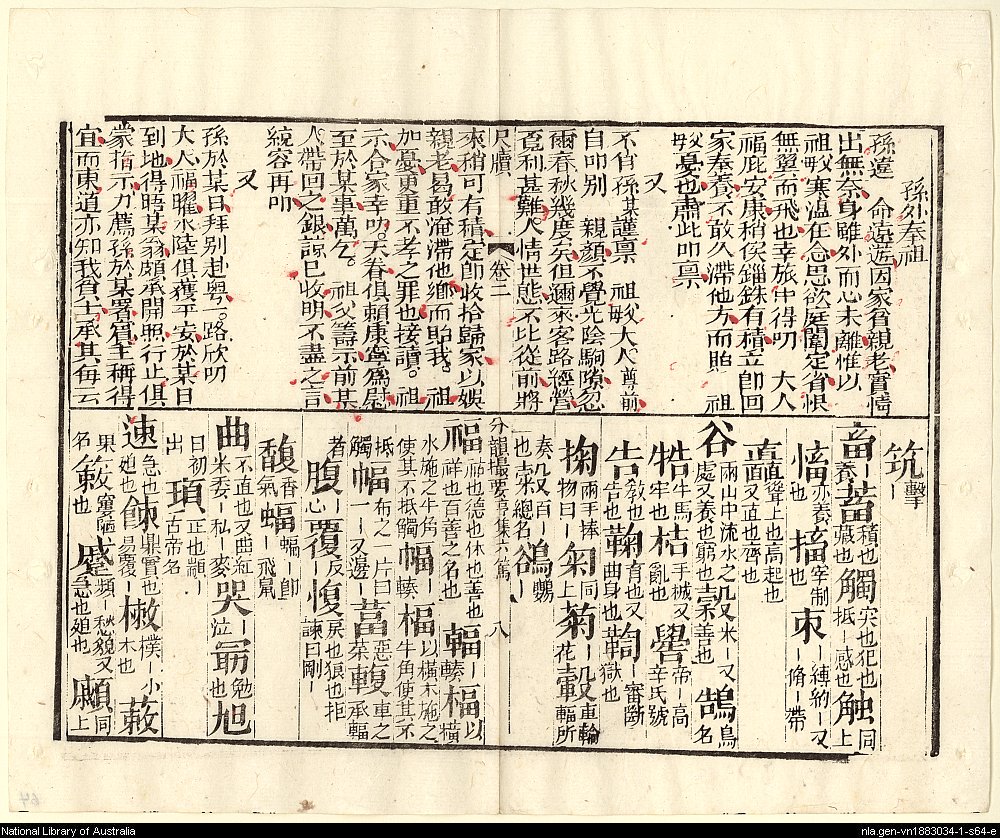 孫外奉祖
孫遠　命遠遊因家貧親老實情
出無奈身雖外而心未離惟以
祖母寒溫在念思欲庭闈定省恨
無翼而飛也幸旅中得叨　大人
福庇安康稍俟錙銖有積立即回
家奉養不敢久滯他方而貽　祖
母憂也肅此叩禀
又
不肖孫某謹禀　祖母大人尊前
自叩别　親顏不覺光陰駒隙忽
爾春秋幾度矣但邇來客路經營
覓利甚難人情世態不比從前將
尺牘　卷二
來稍可有積定即收拾歸家以娛
親老曷敢淹滯他鄉而貽我　祖
加憂更重不孝之罪也接讀　祖
示合家幸叨天眷俱賴康寧爲慰
至於某事萬乞　祖父籌示前某
人帶回之銀諒已收明不盡之言
統容再叩
又
孫於某日拜别赴粵一路欣叨
大人福曜水陸俱獲平安於某日
到地得晤某翁頗承開照行止俱
蒙指示力薦孫於某署賓主稱得
宜而東道亦知我貧士承其每云
筑擊－
畜－養蓄－積也藏也觸突也犯也抵－感也触同上
慉亦養也搐牽制也束縛約－又脩－帶
矗聳上也高起也又直也齊也
谷兩山中流水之處又養也窮也榖米－又善也鵠鳥名
牿牛馬牢也梏手械又亂也嚳帝－高辛氏號
告教也告也鞠育也又曲身也鞫－審斷獄也
掬兩手捧物曰－匊同上菊花－轂車輪輻所
奏
分韻撮要 亭集六篤 八
福祥也百善之名也輻輳－楅以橫
水施之牛角使其不抵觸
幅布之一片曰－又邊－葍惡菜輹車之承輻者
腹心－覆－反愎戾也狠也拒諫曰剛－
馥香氣蝠蝙－即飛鼠
曲不直也又曲紅米委－私－麥哭泣－勗勉也旭
日初出頊正也顓－古帝名
速急也廹也餗鼎實也易覆－樕樸－小木也蔌
果名簌也蹙－頞－愁貌又急也廹也顣同上
National Library of Australia
nla.gen-vn1883034-1-s64-e